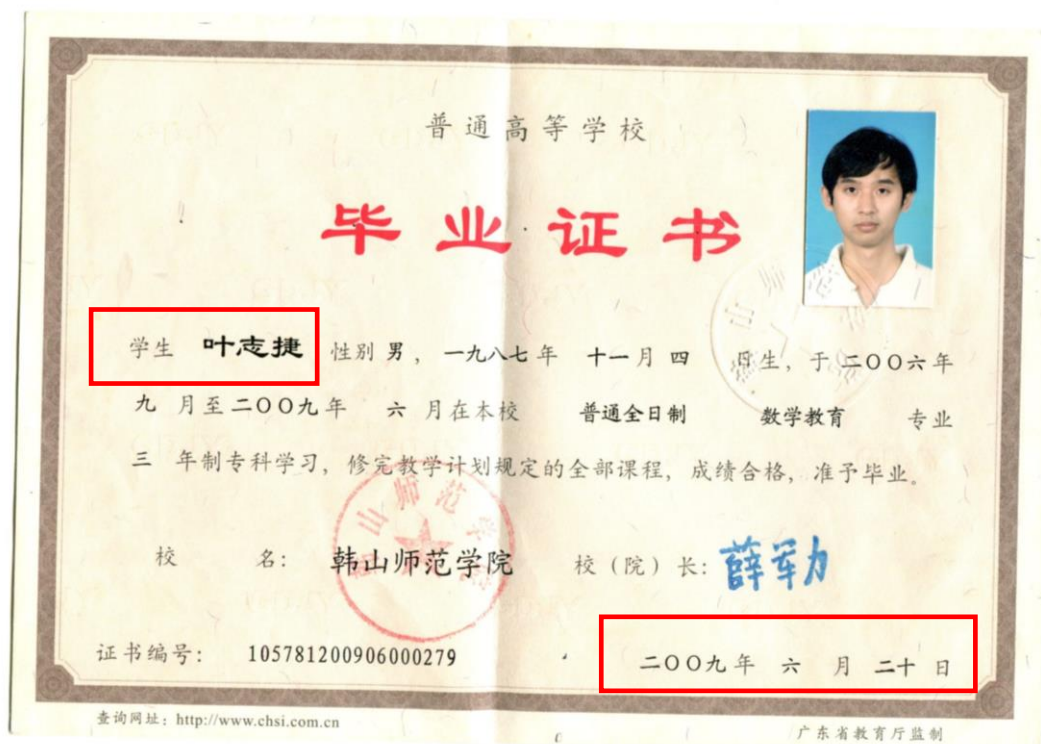 普通高等学校
毕业证书
学生 叶志捷 性别 男，一九八七年 十一月 四 日生，于二〇〇六年
九 月至二〇〇九年 六 月在本校 普通全日制 数学教育 专业
三 年制专科学习，修完教学计划规定的全部课程，成绩合格，准予毕业。
校 名： 韩山师范学院 校（院）长：薛军力
证书编号： 105781200906000279 二〇〇九年 六 月 二十 日
查询网址：http://www.chsi.com.cn 广东省教育厅监制